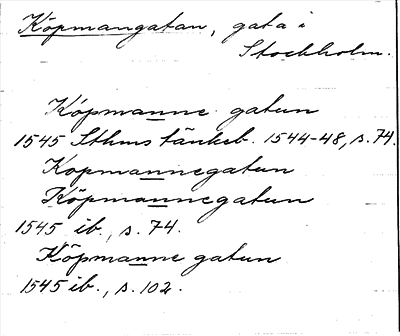 Köpmangatan, gata i
Stockholm.
Köpmanne gatun
1545 Sthms tänkeb. 1544-48, s. 74.
Kopmannegatun
Köpmannegatun
1545 ib., s. 74.
Köpmanne gatun
1545 ib., s. 102.